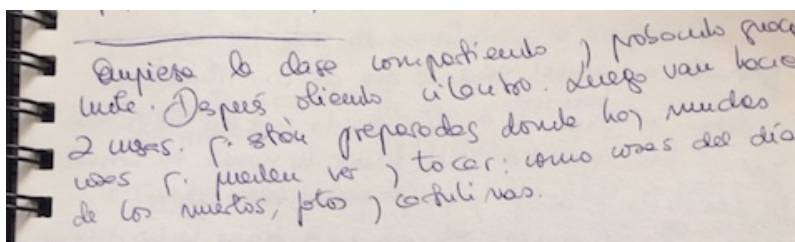 Empieza la clase compartiendo y probando guaca
mole. Después oliendo cilantro. Luego van hacia
2 mesas q. están preparadas donde hay muchas
cosas q. pueden ver y tocar: como cosas del día
de los muertos, fotos y cartulinas.